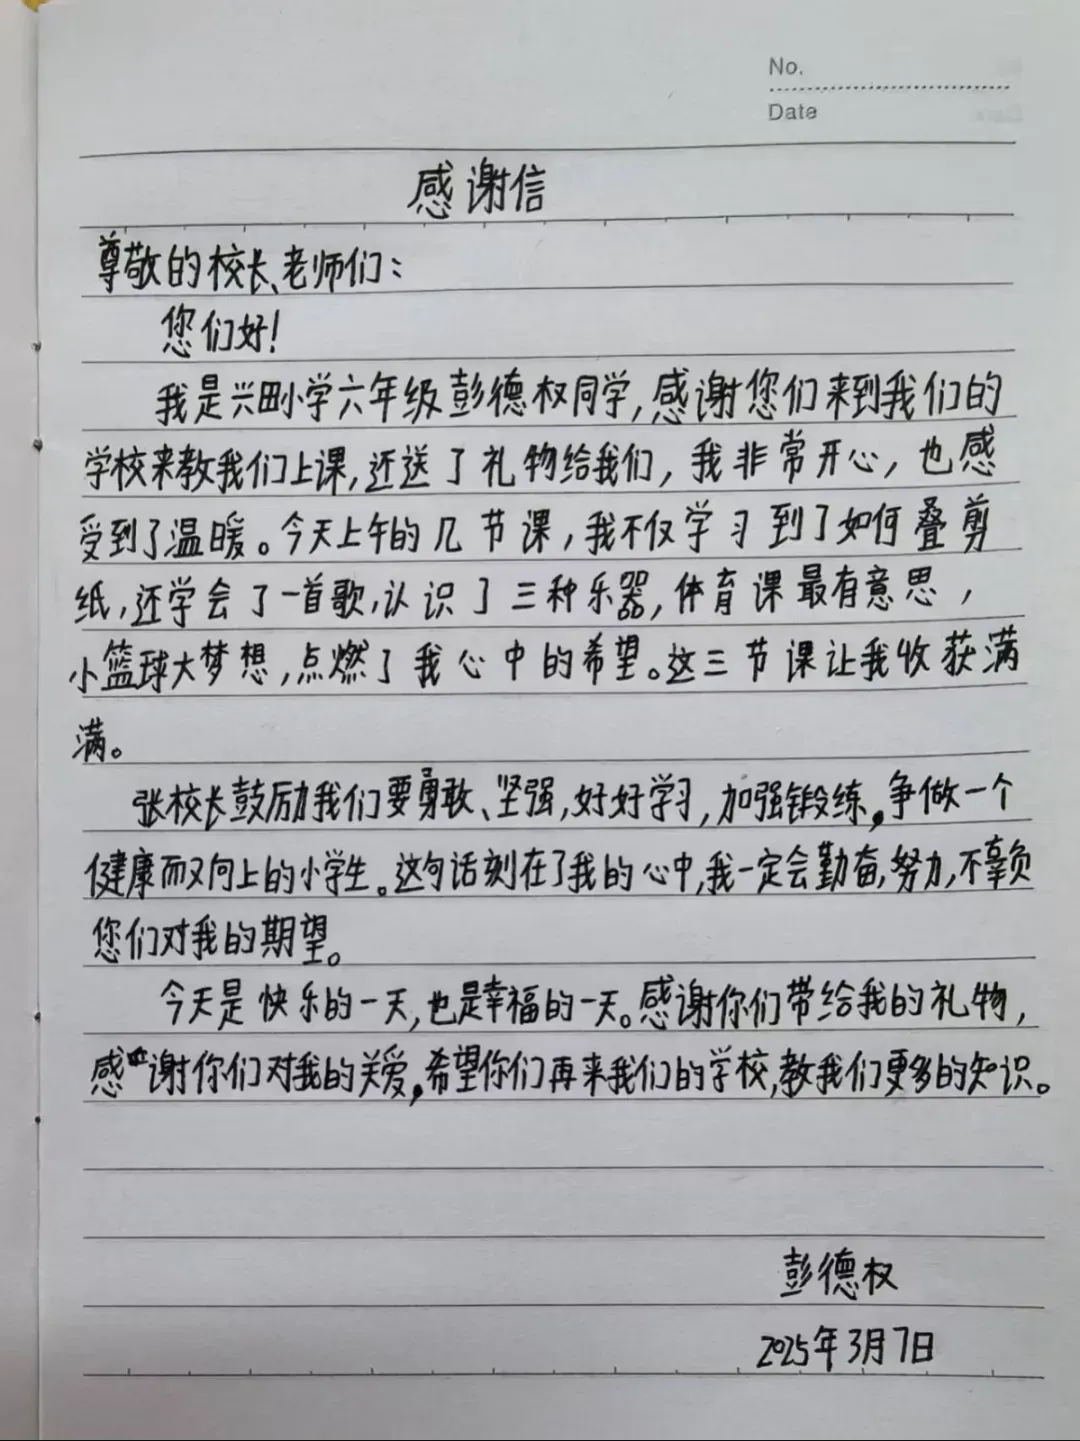 No.
Date
感谢信
尊敬的校长、老师们：
您们好！
我是兴田小学六年级彭德权同学，感谢您们来到我们的
学校来教我们上课，还送了礼物给我们，我非常开心，也感
受到了温暖。今天上午的几节课，我不仅学习到了如何叠剪
纸，还学会了一首歌，认识了三种乐器，体育课最有意思，
小篮球大梦想，点燃了我心中的希望。这三节课让我收获满
满。
张校长鼓励我们要勇敢、坚强，好好学习，加强锻练，争做一个
健康而又向上的小学生。这句话刻在了我的心中，我一定会勤奋，努力，不辜负
您们对我的期望。
今天是快乐的一天，也是幸福的一天。感谢你们带给我的礼物，
感谢你们对我的关爱，希望你们再来我们的学校，教我们更多的知识。
彭德权
2025年3月7日